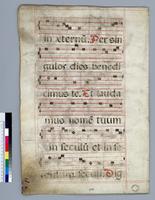 in æternū. Per sin
gulos dies benedi
cimus te. Et lauda
mus nomē tuum
in seculū et in se
culum seculi. Dig